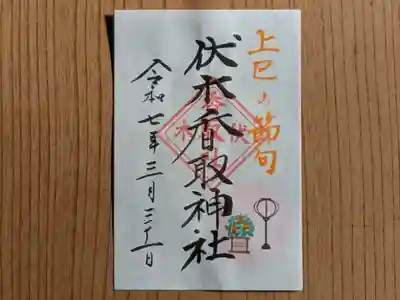 上巳の節句
伏木香取神社
令和七年三月三十一日